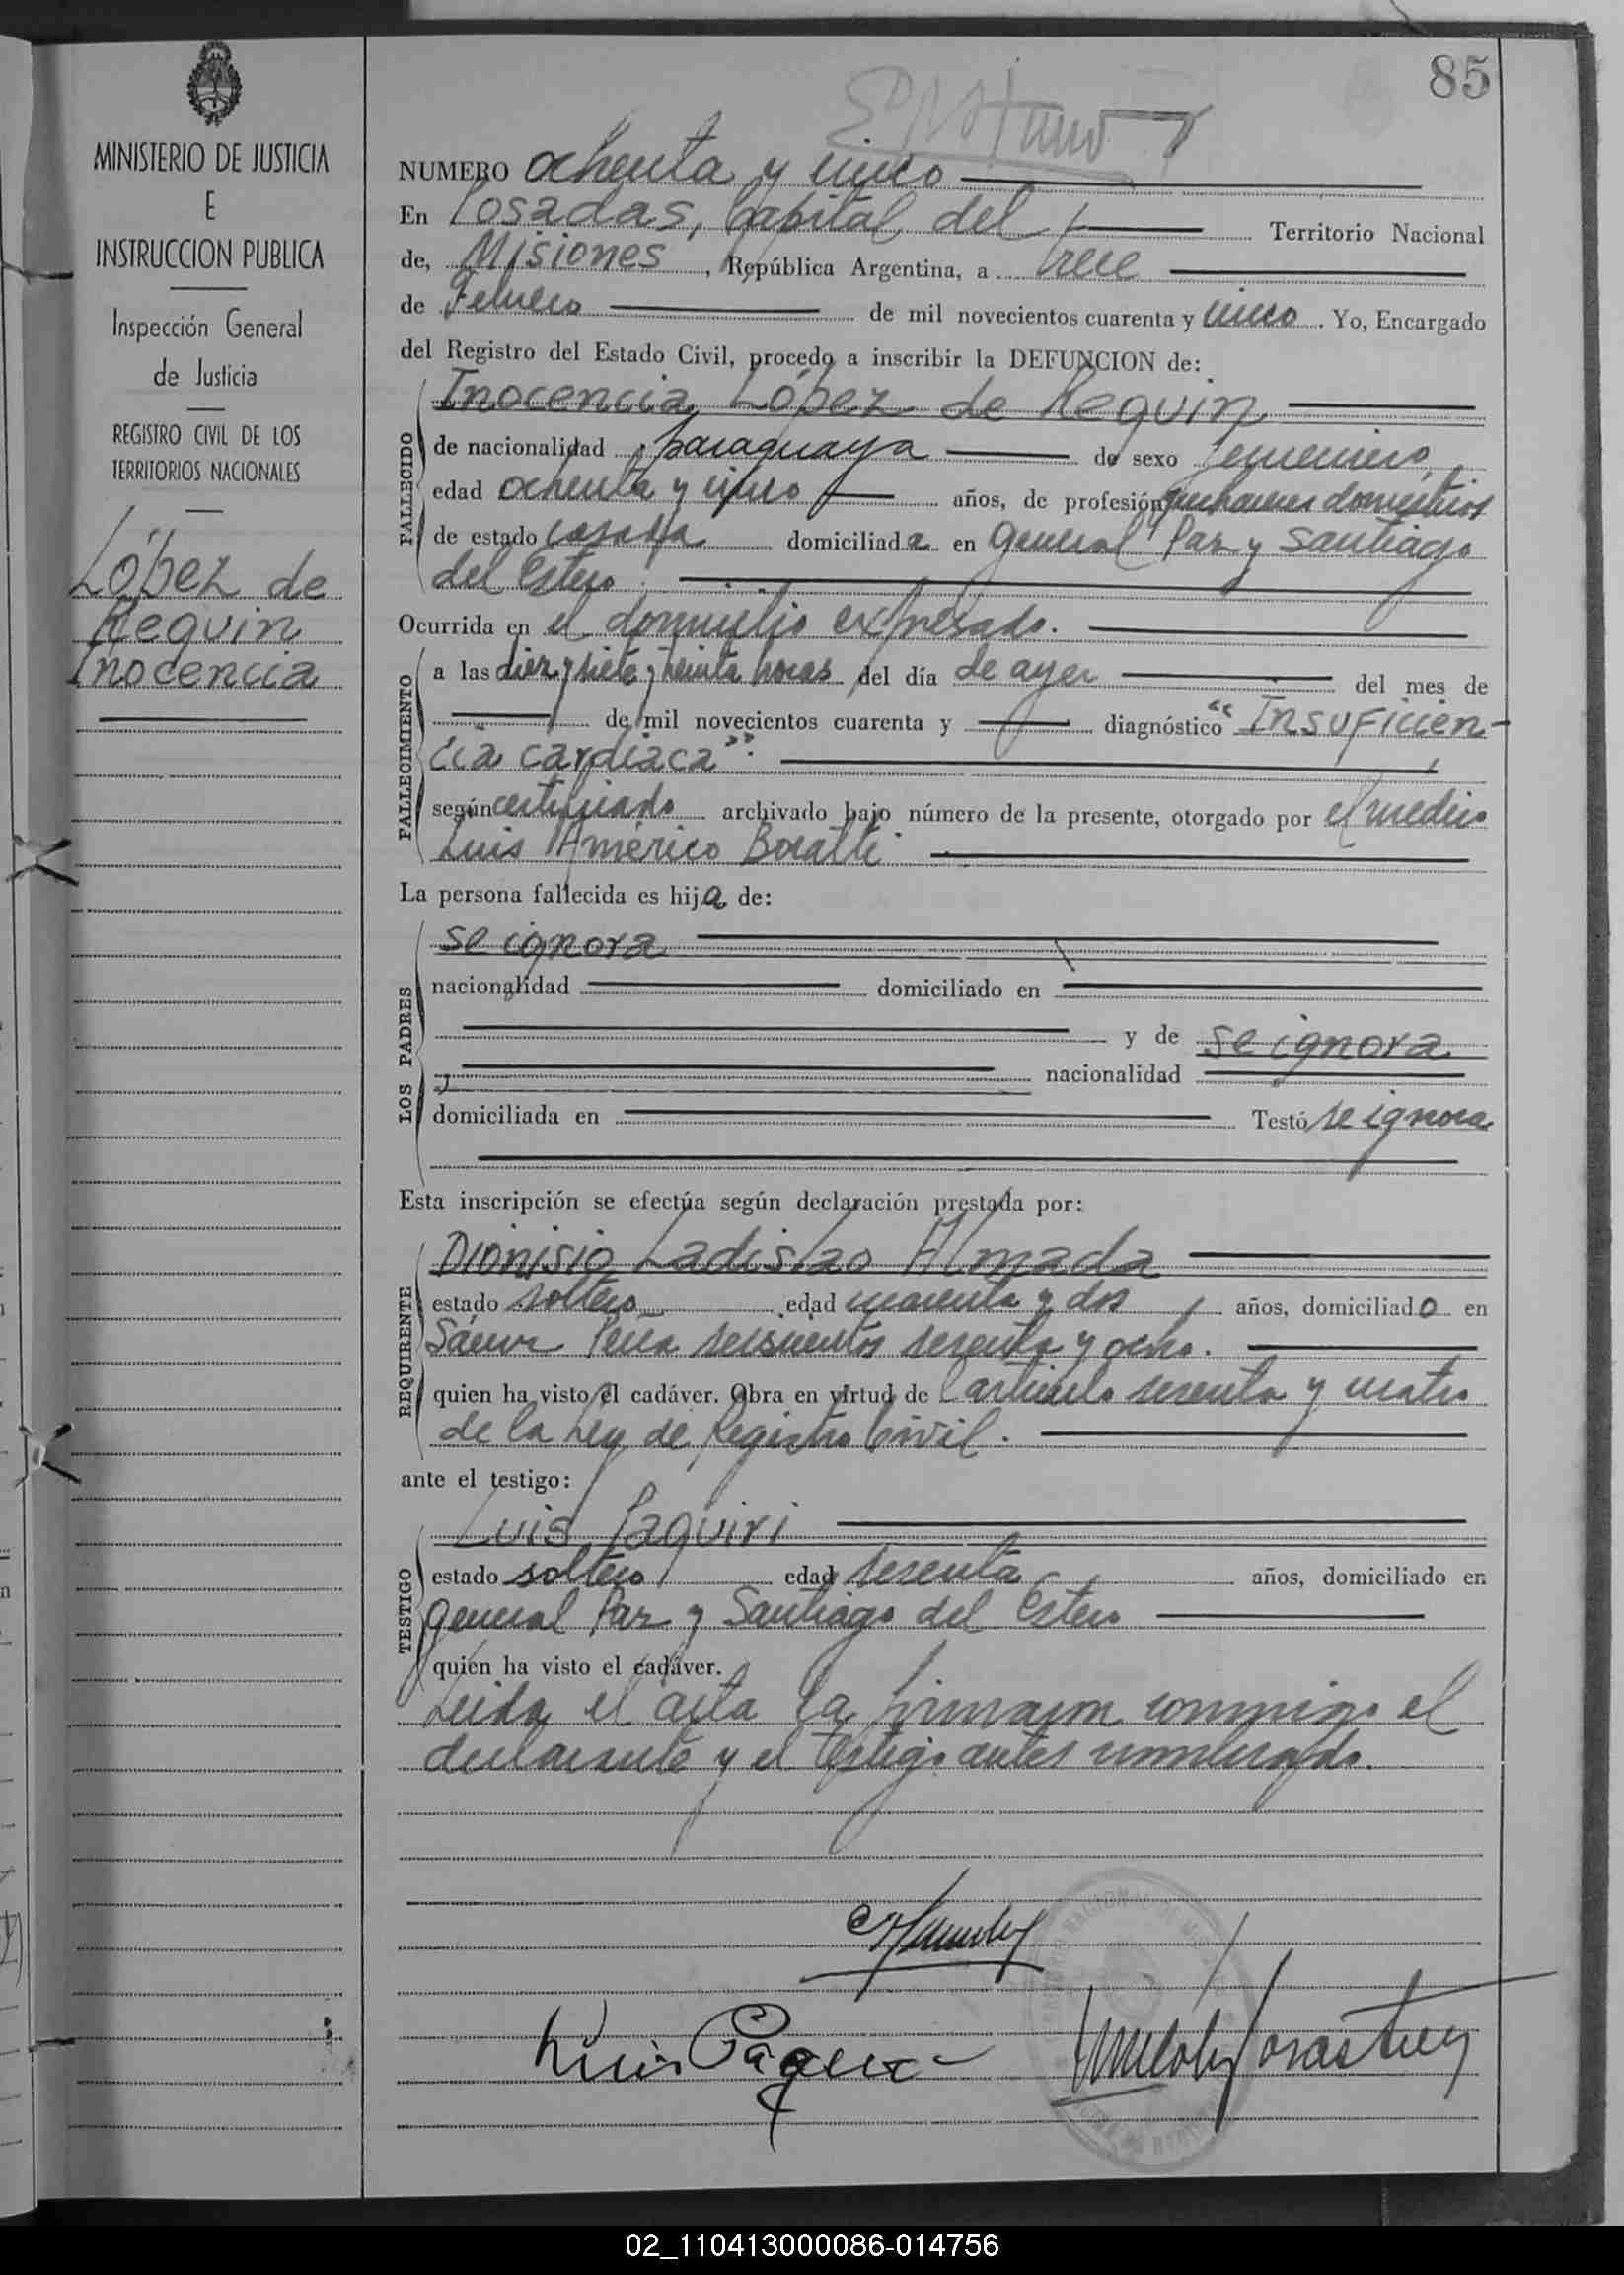 85
MINISTERIO DE JUSTICIA
E
INSTRUCCION PUBLICA
Inspección General
de Justicia
REGISTRO CIVIL DE LOS
TERRITORIOS NACIONALES
López de
Requin
Inocencia
NUMERO ochenta y cinco
En Posadas, Capital del Territorio Nacional
de, Misiones, República Argentina, a trece
de Febrero de mil novecientos cuarenta y cinco. Yo, Encargado
del Registro del Estado Civil, procedo a inscribir la DEFUNCION de:
Inocencia López de Requin
FALLECIDO
de nacionalidad paraguaya de sexo femenino,
edad ochenta y cinco años, de profesión quehaceres domésticos
de estado casada domiciliada en General Paz y Santiago
del Estero.
Ocurrida en el domicilio expresado.
FALLECIMIENTO
a las diez y siete y treinta horas del día de ayer del mes de
de mil novecientos cuarenta y diagnóstico "Insuficien-
cia cardíaca".
según certificado archivado bajo número de la presente, otorgado por el médico
Luis Américo
La persona fallecida es hija de:
LOS PADRES
se ignora
nacionalidad domiciliado en
y de se ignora
nacionalidad
domiciliada en Testó se ignora
Esta inscripción se efectúa según declaración prestada por:
REQUIRENTE
Dionisio Ladislao Almada
estado soltero edad cuarenta y dos años, domiciliado en
Sáenz Peña seiscientos sesenta y ocho.
quien ha visto el cadáver. Obra en virtud de l artículo sesenta y cuatro
de la Ley de Registro Civil.
ante el testigo:
TESTIGO
Luis Paquiri
estado soltero edad sesenta años, domiciliado en
General Paz y Santiago del Estero
quien ha visto el cadáver.
Leida el acta la firmaron conmigo el
declarante y el testigo antes nombrado.
Luis
02_110413000086-014756